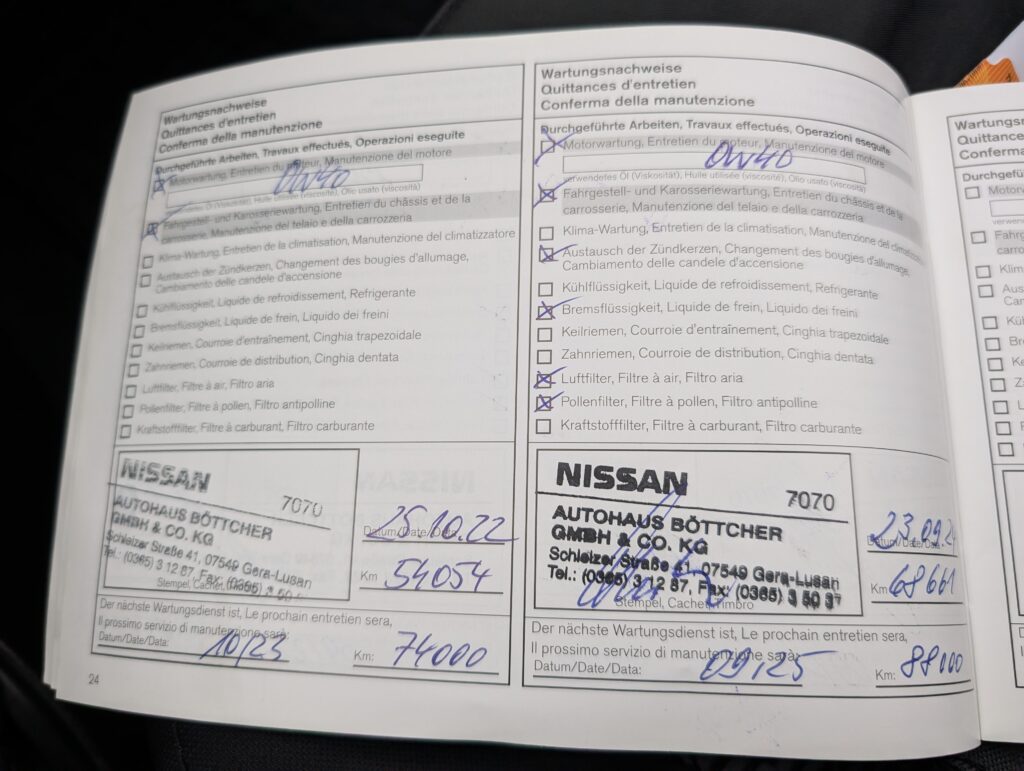 Wartungsnachweise
Quittances d'entretien
Conferma della manutenzione
Durchgeführte Arbeiten, Travaux effectués, Operazioni eseguite
Motorwartung, Entretien du moteur, Manutenzione del motore
0W40
verwendetes Öl (Viskosität), Huile utilisée (viscosité), Olio usato (viscosità)
Fahrgestell- und Karosseriewartung, Entretien du châssis et de la
carrosserie, Manutenzione del telaio e della carrozzeria
Klima-Wartung, Entretien de la climatisation, Manutenzione del climatizzatore
Austausch der Zündkerzen, Changement des bougies d'allumage,
Cambiamento delle candele d'accensione
Kühlflüssigkeit, Liquide de refroidissement, Refrigerante
Bremsflüssigkeit, Liquide de frein, Liquido dei freini
Keilriemen, Courroie d'entraînement, Cinghia trapezoidale
Zahnriemen, Courroie de distribution, Cinghia dentata
Luftfilter, Filtre à air, Filtro aria
Pollenfilter, Filtre à pollen, Filtro antipolline
Kraftstofffilter, Filtre à carburant, Filtro carburante
NISSAN 7070
AUTOHAUS BÖTTCHER
GMBH & CO. KG
Schleizer Straße 41, 07549 Gera-Lusan
Tel.: (0365) 3 12 87, Fax: (0365) 3 50
Stempel, Cachet,
25.10.22
Datum/Date/Data:
Km 54054
Der nächste Wartungsdienst ist, Le prochain entretien sera,
Il prossimo servizio di manutenzione sarà:
Datum/Date/Data: 10/23 Km: 74000
24
Wartungsnachweise
Quittances d'entretien
Conferma della manutenzione
Durchgeführte Arbeiten, Travaux effectués, Operazioni eseguite
Motorwartung, Entretien du moteur, Manutenzione del motore
0W40
verwendetes Öl (Viskosität), Huile utilisée (viscosité), Olio usato (viscosità)
Fahrgestell- und Karosseriewartung, Entretien du châssis et de la
carrosserie, Manutenzione del telaio e della carrozzeria
Klima-Wartung, Entretien de la climatisation, Manutenzione del climatizzatore
Austausch der Zündkerzen, Changement des bougies d'allumage,
Cambiamento delle candele d'accensione
Kühlflüssigkeit, Liquide de refroidissement, Refrigerante
Bremsflüssigkeit, Liquide de frein, Liquido dei freini
Keilriemen, Courroie d'entraînement, Cinghia trapezoidale
Zahnriemen, Courroie de distribution, Cinghia dentata
Luftfilter, Filtre à air, Filtro aria
Pollenfilter, Filtre à pollen, Filtro antipolline
Kraftstofffilter, Filtre à carburant, Filtro carburante
NISSAN 7070
AUTOHAUS BÖTTCHER
GMBH & CO. KG
Schleizer Straße 41, 07549 Gera-Lusan
Tel.: (0365) 3 12 87, Fax: (0365) 3 50 37
Stempel, Cachet, Timbro
23.09.24
Datum/Date/Data:
Km 68661
Der nächste Wartungsdienst ist, Le prochain entretien sera,
Il prossimo servizio di manutenzione sarà:
Datum/Date/Data: 09.25 Km: 88000